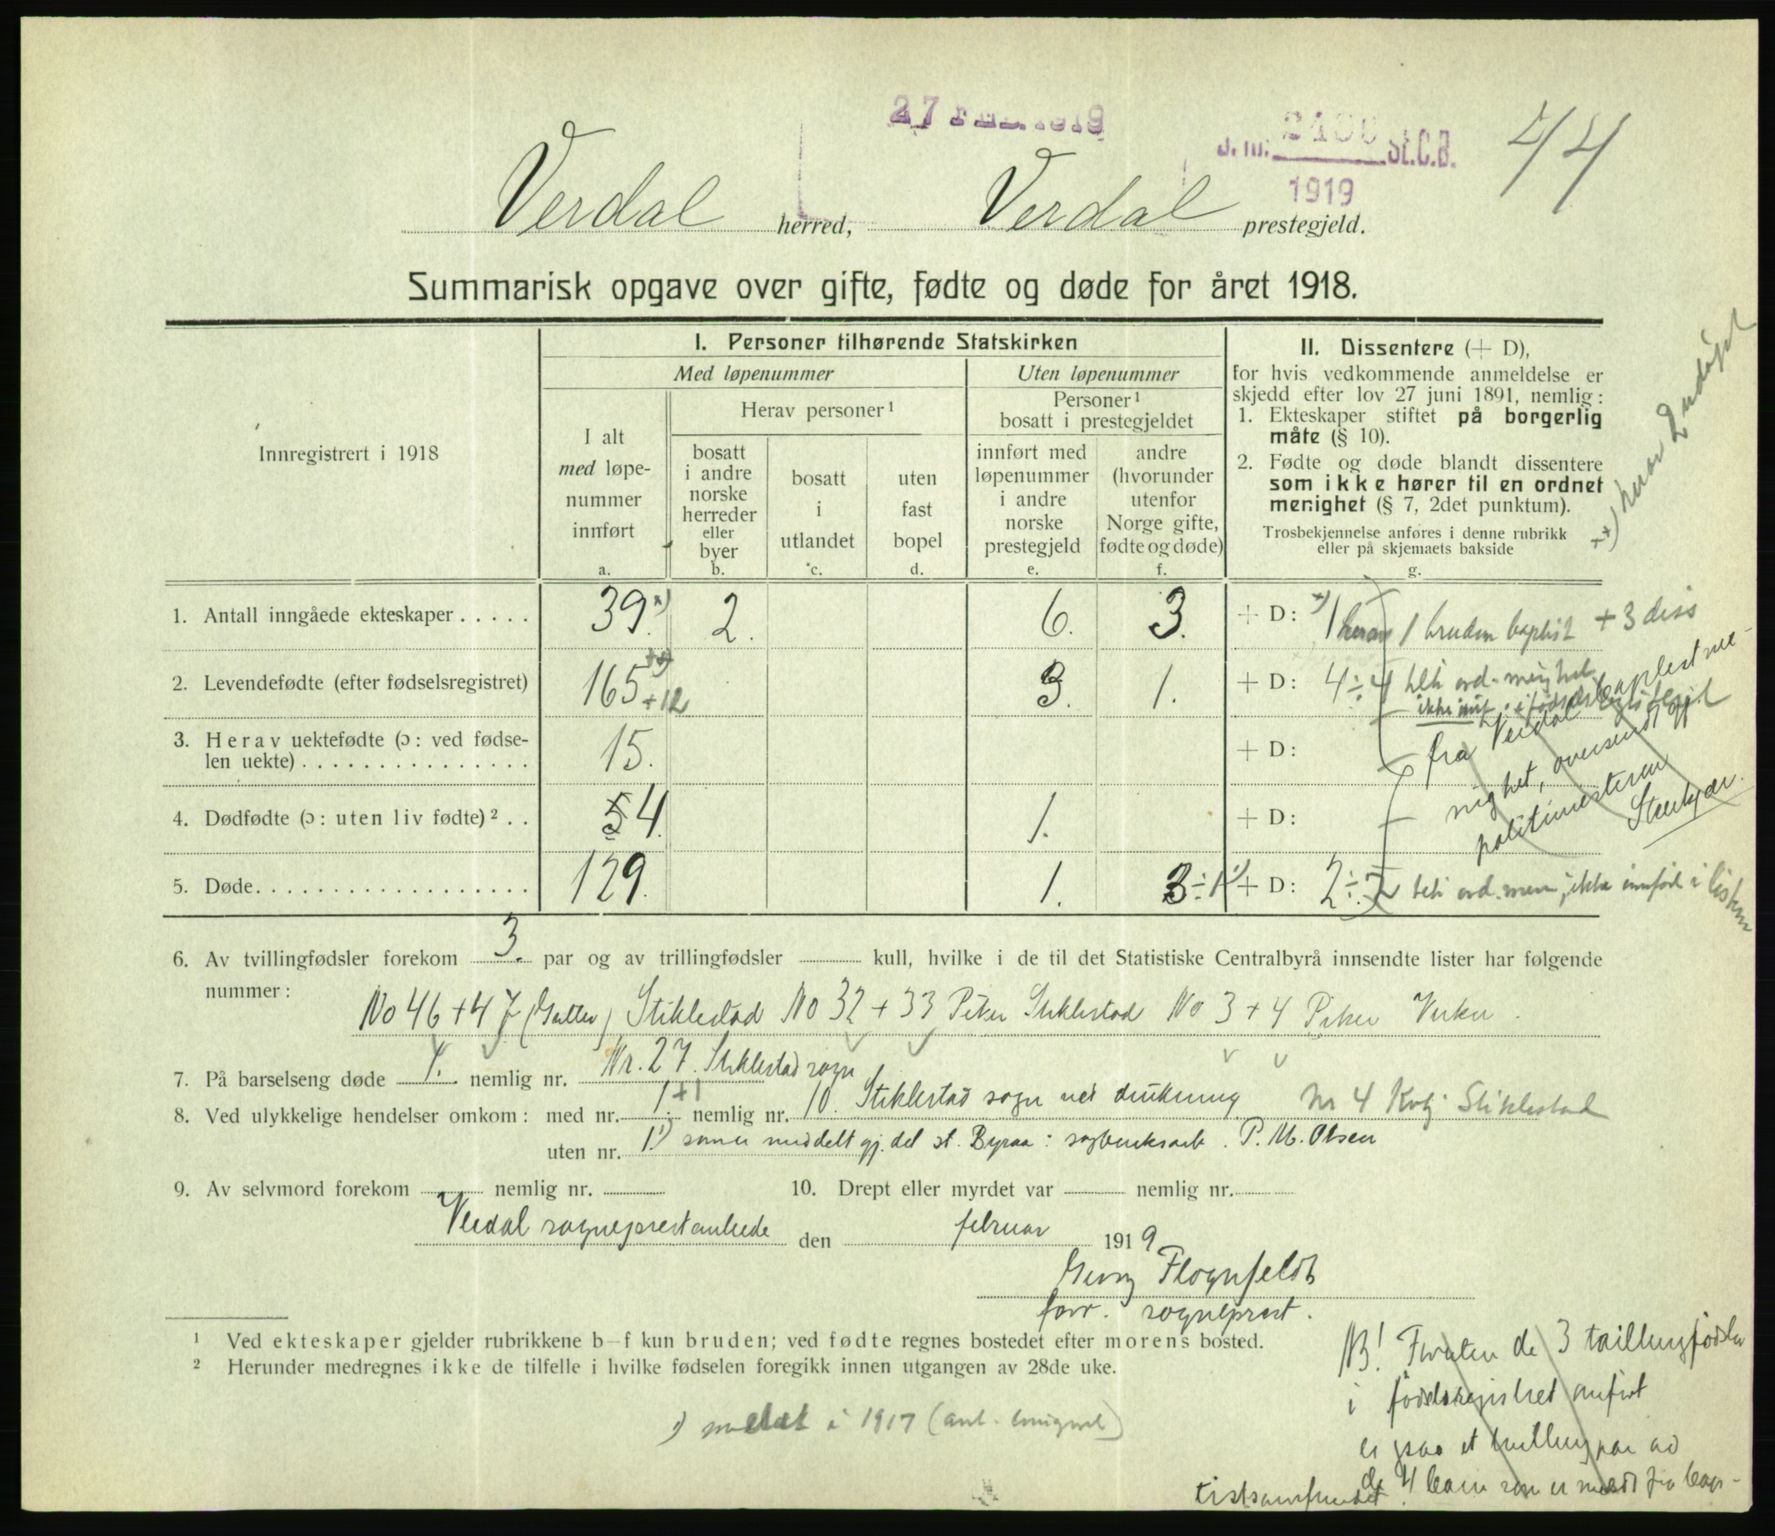 27 FEB. 1919
J. nr. St.C.B.
1919
44
Verdal herred, Verdal prestegjeld.
Summarisk opgave over gifte, fødte og døde for året 1918.
Innregistrert i 1918
I. Personer tilhørende Statskirken
Med løpenummer
Uten løpenummer
I alt
med løpe-
nummer
innført
a.
Herav personer¹
bosatt
i andre
norske
herreder
eller
byer
b.
bosatt
i
utlandet
c.
uten
fast
bopel
d.
Personer¹
bosatt i prestegjeldet
innført med
løpenummer
i andre
norske
prestegjeld
e.
andre
(hvorunder
utenfor
Norge gifte,
fødte og døde)
f.
II. Dissentere (+ D),
for hvis vedkommende anmeldelse er
skjedd efter lov 27 juni 1891, nemlig:
1. Ekteskaper stiftet på borgerlig
måte (§ 10).
2. Fødte og døde blandt dissentere
som ikke hører til en ordnet
menighet (§ 7, 2det punktum).
Trosbekjennelse anføres i denne rubrikk
eller på skjemaets bakside
g.
1. Antall inngåede ekteskaper..... 39 x) 2. 6. 3. + D: x) 1 herav 1 bruden baptist + 3 diss
2. Levendefødte (efter fødselsregistret) 165 xx) + 12 3. 1. + D: 4 ÷ 4
3. Herav uektefødte (ɔ: ved fødse-
len uekte)............... 15. + D:
4. Dødfødte (ɔ: uten liv fødte)².. 5 4. 1. + D:
5. Døde.................. 129. 1. 3 ÷ 1 ¹) + D: 2 ÷ 2 ikke innført i listen
fra Verdal
menighet, oversendt gj.
politimesteren
Steinkjer.
6. Av tvillingfødsler forekom 3. par og av trillingfødsler kull, hvilke i de til det Statistiske Centralbyrå innsendte lister har følgende
nummer:
No 46 + 47 (Gutter) Stiklestad No 32 + 33 Piker Stiklestad No 3 + 4 Piker Vuku.
7. På barselseng døde 1. nemlig nr. Nr. 27. Stiklestad sogn
8. Ved ulykkelige hendelser omkom: med nr. 1 + 1 nemlig nr. 10. Stiklestad sogn ved drukning Nr 4 Kvkj. Stiklestad
uten nr. 1 ¹) som er meddelt gj. det st. Byraa: sagbruksarb. P. M. Olsen
9. Av selvmord forekom nemlig nr. 10. Drept eller myrdet var nemlig nr.
Verdal sogneprestembede den februar 1919
Georg Flognfeldt
forr. sogneprest.
¹ Ved ekteskaper gjelder rubrikkene b–f kun bruden; ved fødte regnes bostedet efter morens bosted.
² Herunder medregnes ikke de tilfelle i hvilke fødselen foregikk innen utgangen av 28de uke.
¹) meldt i 1917
NB! Foruten de 3 tvillingfødsler
i fødselsregistret anført
er ogsaa et tvillingpar av
de 4 barn som er meldt fra bap-
tistsamfundet.